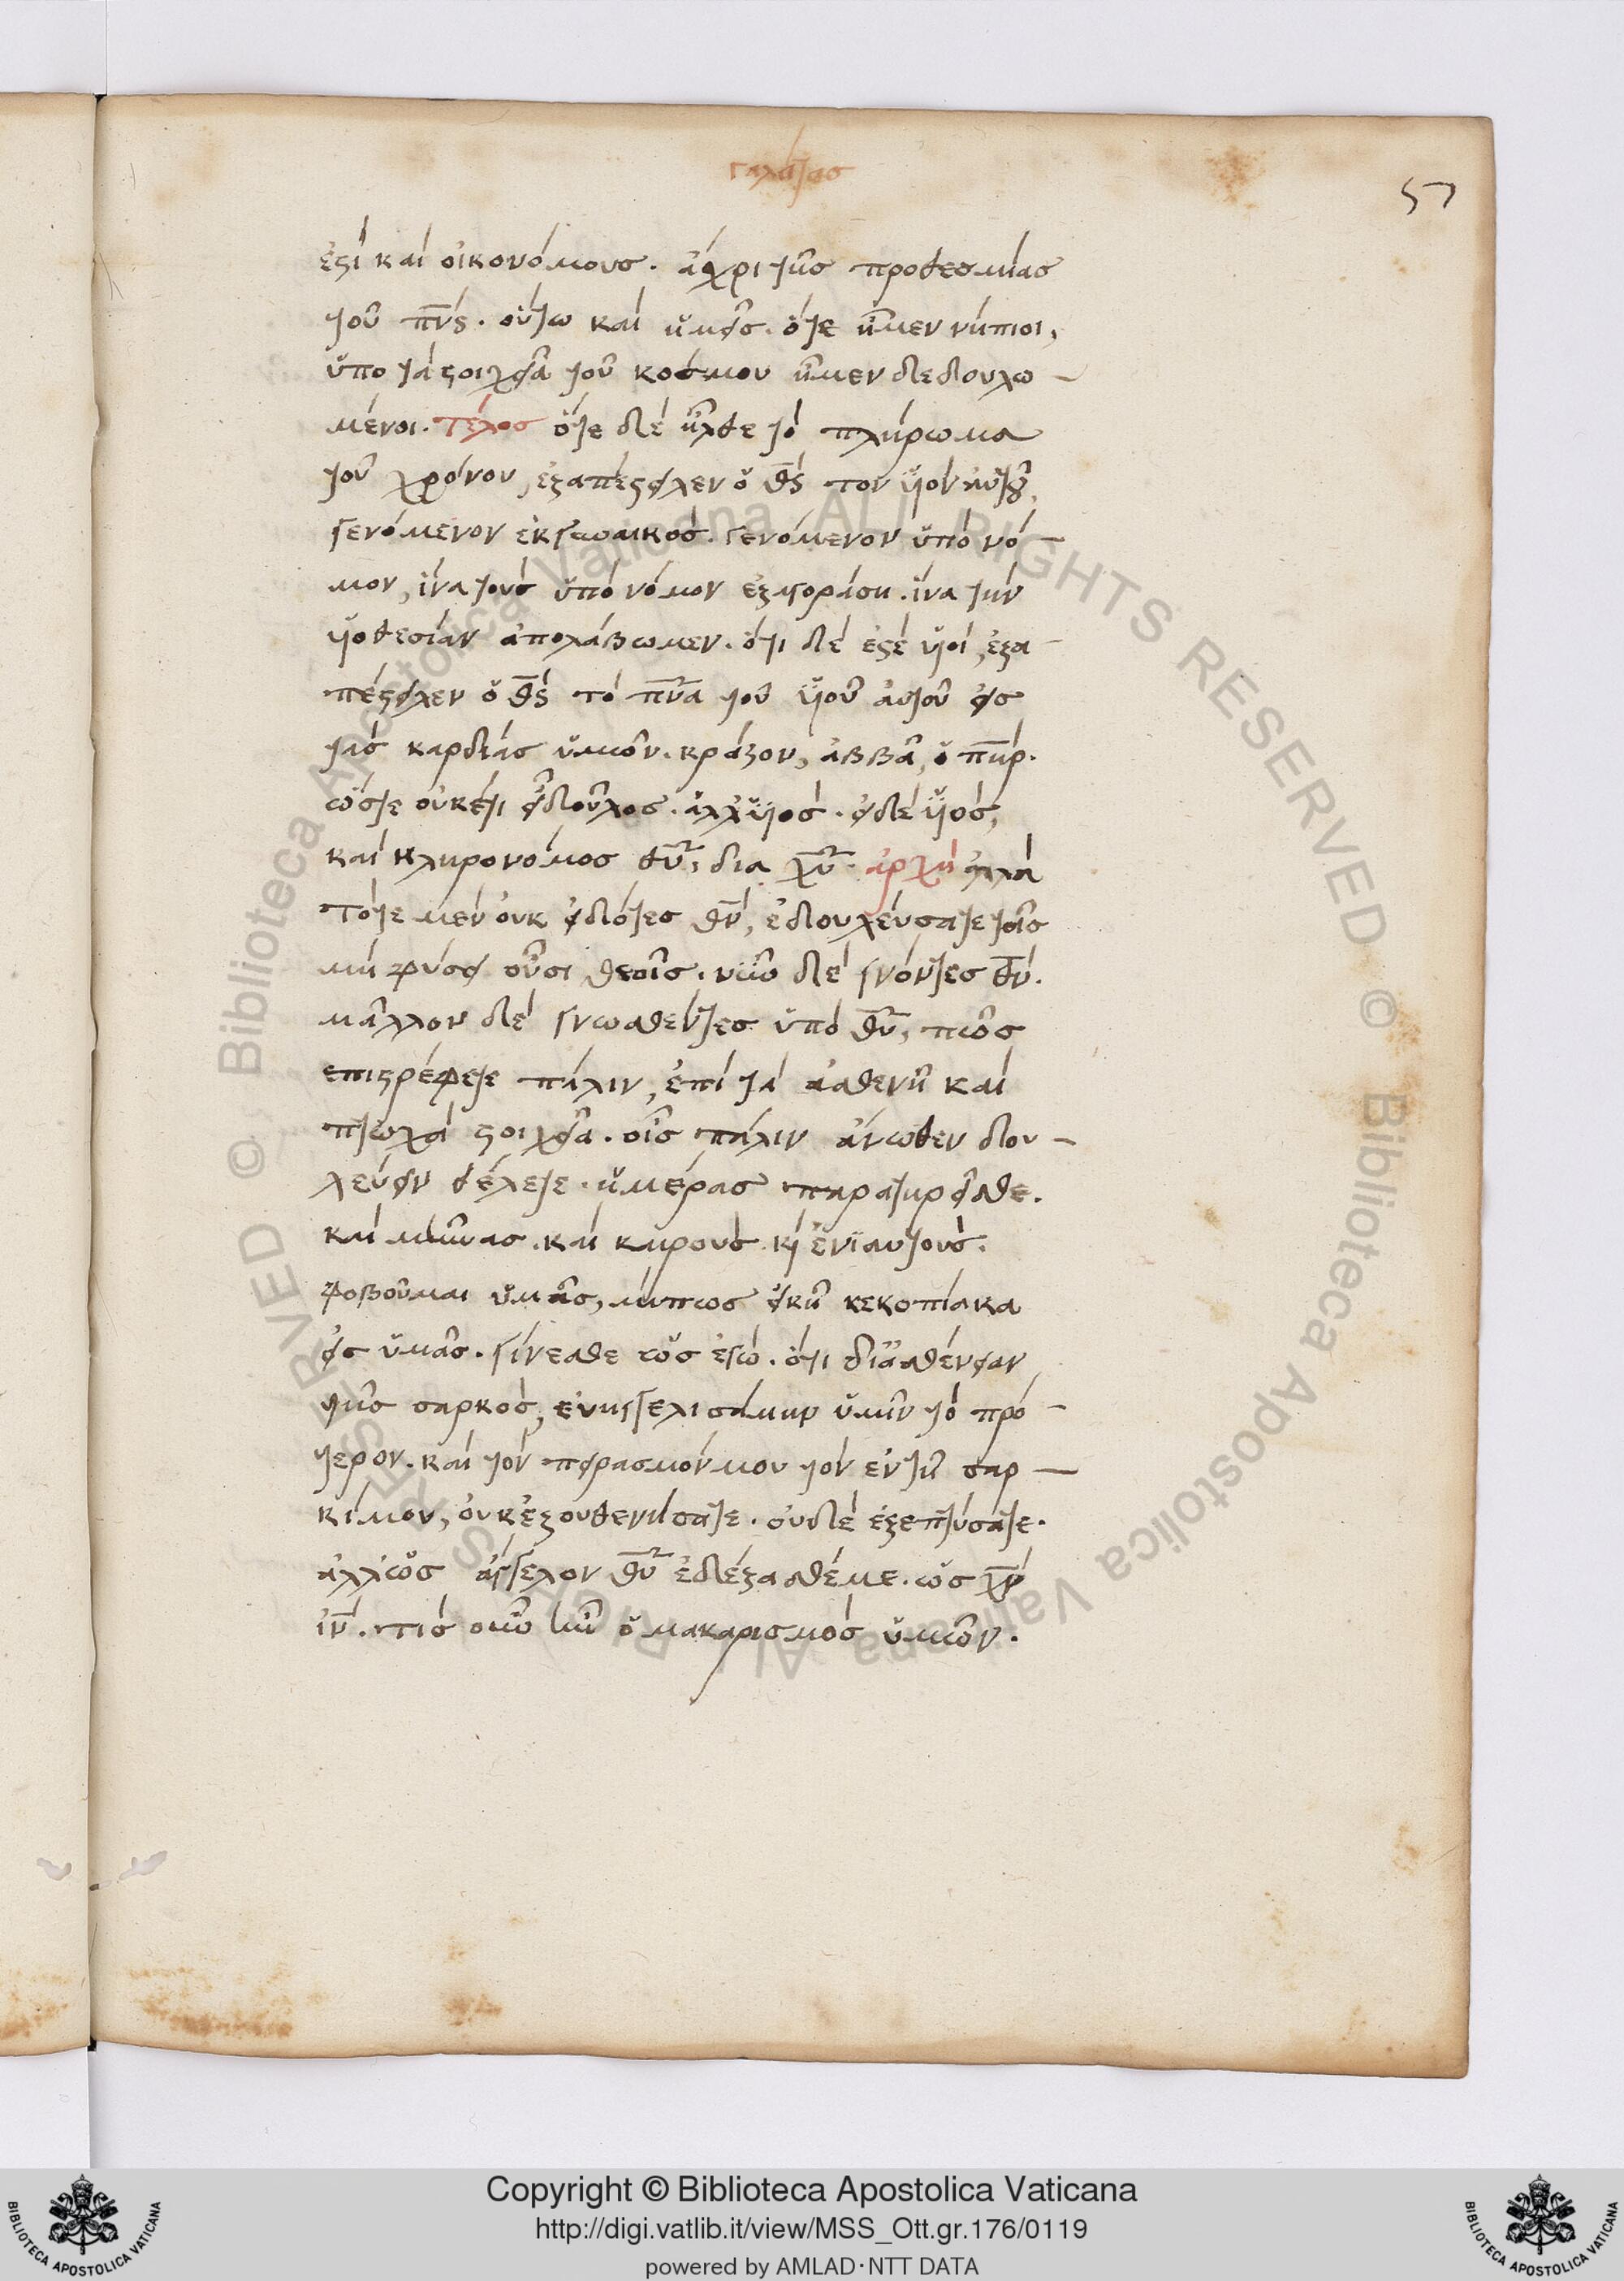 γαλάτασ
57
ἐστὶ καὶ οἰκονόμουσ. ἄχρι τῆσ προθεσμίασ
τοῦ π̅ρ̅ς. οὕτω καὶ ἡμεῖσ. ὅτε ἦμεν νήπιοι,
ὑπο τὰ στοιχεῖα τοῦ κόσμου ἦμεν δεδουλω
μένοι. τέλοσ ὅτε δὲ ἦλθε τὸ πλήρωμα
τοῦ χρόνου, ἐξαπέστειλεν ὁ θ̅ς̅ τον υἱὸν αὐτοῦ,
γενόμενον ἐκ γυναικόσ. γενόμενον ὑπὸ νό
μον, ἵνα τοὺσ ὑπὸ νόμον ἐξαγοράση. ἵνα τὴν
υἱοθεσίαν ἀπολάβωμεν. ὅτι δὲ ἐστὲ υἱοὶ, ἐξα
πέστειλεν ὁ θ̅ς̅ τὸ π̅ν̅α̅ τοῦ υἱοῦ αὐτοῦ εἰσ
τὰσ καρδίασ ὑμῶν. κράζον, ἀββᾶ, ὁ π̅η̅ρ̅.
ὥστε οὐκέτι εἶ δοῦλοσ. ἀλλ' υἱόσ. εἰ δὲ υἱόσ,
καὶ κληρονόμοσ θ̅υ̅, δια χ̅υ̅. ἀρχὴ ἀλλὰ
τότε μεν οὐκ εἰδότεσ θ̅ν̅, ἐδουλεύσατε τοῖσ
μὴ φύσει οὖσι θεοῖσ. νῦν δὲ γνόντεσ θ̅ν̅.
μᾶλλον δὲ γνωσθέντεσ ὑπὸ θ̅υ̅, πῶσ
επιστρέφετε πάλιν, ἐπὶ τὰ ἀσθενῆ καὶ
πτωχὰ στοιχεῖα. οἷσ πάλιν ἄνωθεν δου
λεύειν θέλετε. ἡμέρασ παρατηρεῖσθε.
καὶ μῆνασ. καὶ καιροὺσ. κὶ ἐνϊαυτοὺσ.
φοβοῦμαι ὑμᾶσ, μήπωσ εἰκῆ κεκοπίακα
εἰσ ὑμᾶσ. γίνεσθε ὡσ ἐγὼ. ὅτι δι ἀσθένειαν
τῆσ σαρκόσ, εὐηγγελισάμην ὑμῖν τὸ πρό
τερον. καὶ τὸν πειρασμόν μου τὸν ἐν τῆ σαρ
κί μου, οὐκ ἐξουθενήσατε. οὐδὲ ἐξεπτύσατε.
ἀλλ' ὡσ ἄγγελον θ̅υ̅ ἐδέξασθέ με. ὡσ χ̅ν̅
ι̅ν̅. τίσ οὖν ἦν ὁ μακαρισμὸσ ὑμῶν.
Copyright © Biblioteca Apostolica Vaticana
http://digi.vatlib.it/view/MSS_Ott.gr.176/0119
powered by AMLAD·NTT DATA